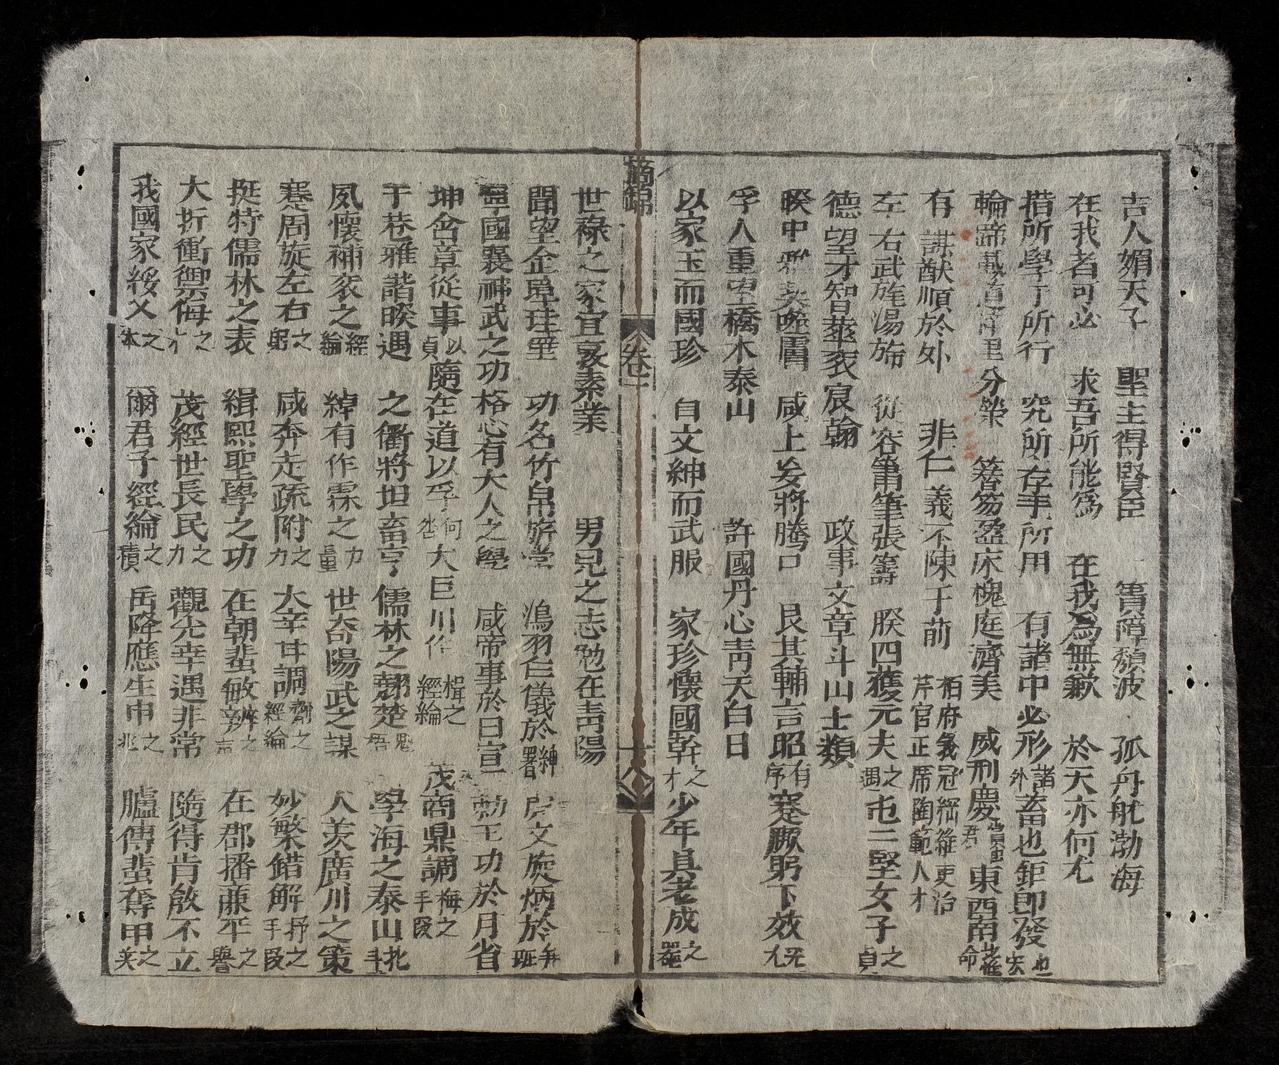 吉人媚天子 聖主得賢臣 一簣障頹波 孤舟航渤海
在我者可必 求吾所能爲 在我爲無歉 於天亦何尤
措所學于所行 究所存乎所用 有諸中必形諸外 畜也鉅即發也宏
分榮 簪笏盈床槐庭濟美 威刑慶君 東西南 命
有謀猷順於外 非仁義不陳于前 栢府義冠綱維吏治 芹官正席陶範人才
左右武旄湯斾 從容簫筆張籌 朕四獲元夫之遇 屯二堅女子之貞
德望才智華袞宸翰 政事文章斗山士類
睽中 噬膚 咸上妄將騰口 艮其輔言昭有序 蹇厥躬下效无尤
孚人重望喬木泰山 許國丹心靑天白日
以家玉而國珍 自文紳而武服 家珍懷國幹之才 少年具老成之器
摘錦 卷二 十八
世祿之家宜敦素業 男兒之志勉在靑陽
聞望金章珪璧 功名竹帛旂常 鴻羽仁儀於紳署 虎文旋炳於 班
寧國襄神武之功 格心有大人之學 咸帝事於日宣 勤王功於月省
坤含章從事以貞 隨在道以孚何咎 大巨川作楫之經綸 茂商鼎調梅之手段
于巷雅諧睽遇 之衢將坦畜亨 儒林之翹楚 學海之泰山北斗
夙懷補袞之經綸 綽有作霖之力量 世奇陽武之謀 人羨廣川之策
蹇周旋左右之躬 咸奔走疏附之力 大辛甘調劑之經綸 妙繁錯解抒之手段
挺特儒林之表 緝熙聖學之功 在朝蜚敏辨之 在郡播廉平之譽
大折衝禦侮之 茂經世長民之力 觀光幸遇非常 隨得肯啟不立
我國家綏乂之 爾君子經綸之積 岳降應生申之兆 臚傳蜚奪甲之美